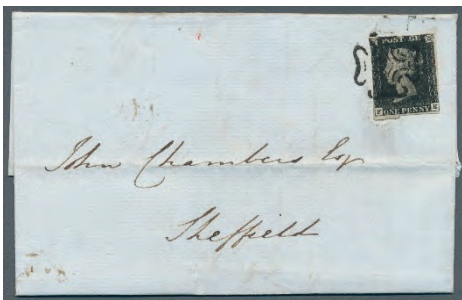 POSTAGE
ONE PENNY
John Chambers Esq
Sheffield